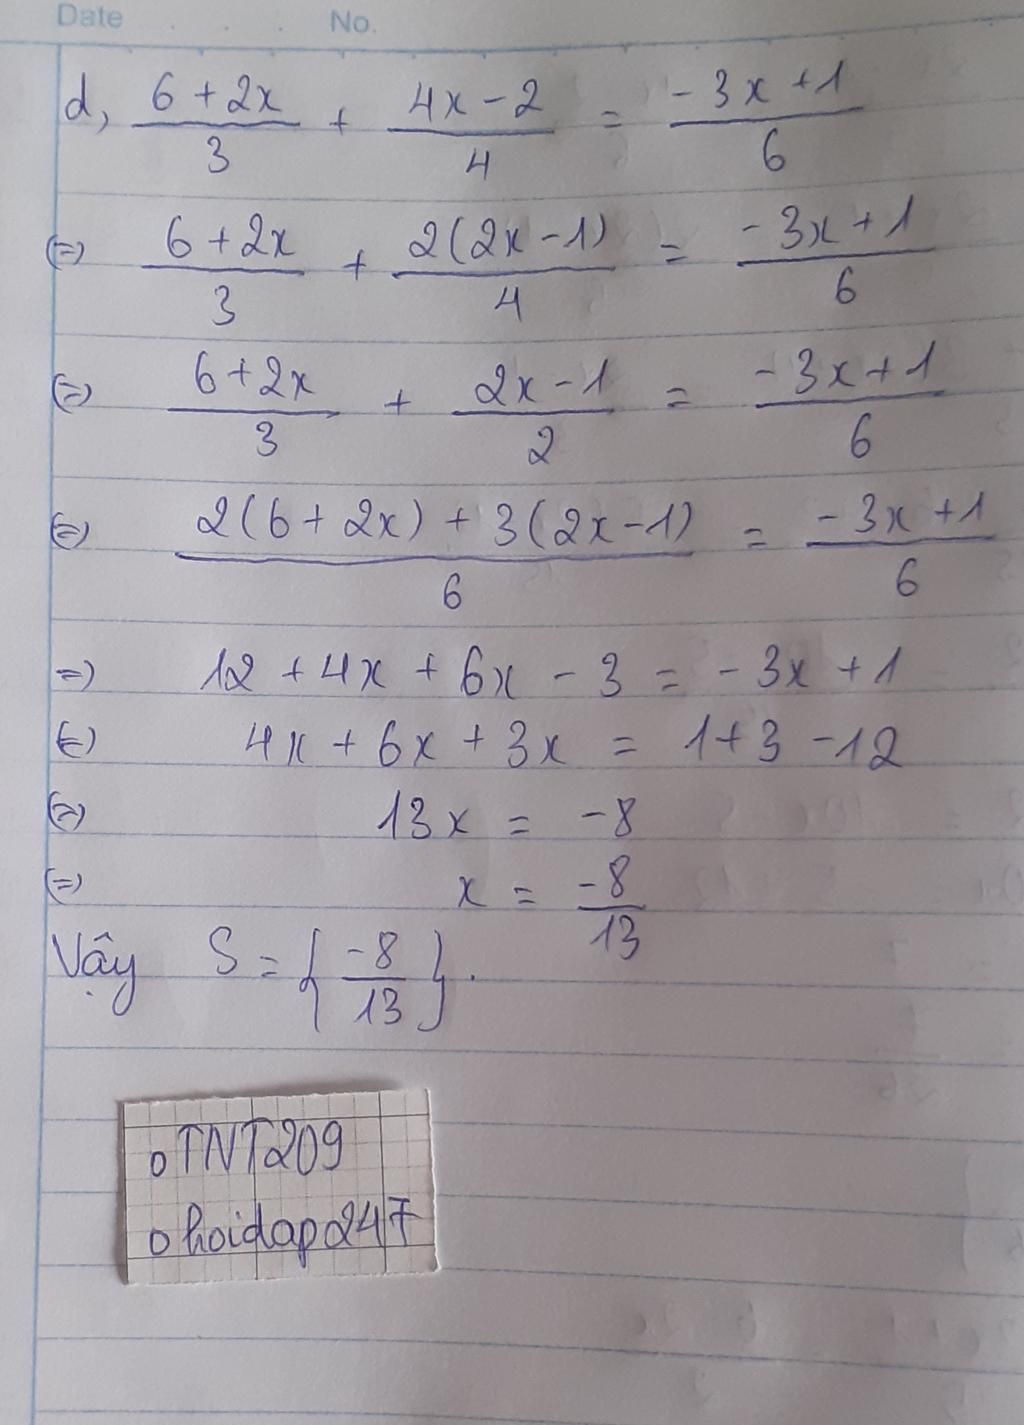 Date . . . No.
d, \frac{6+2x}{3} + \frac{4x-2}{4} = \frac{-3x+1}{6}
(=) \frac{6+2x}{3} + \frac{2(2x-1)}{4} = \frac{-3x+1}{6}
(=) \frac{6+2x}{3} + \frac{2x-1}{2} = \frac{-3x+1}{6}
(=) \frac{2(6+2x)+3(2x-1)}{6} = \frac{-3x+1}{6}
=) 12+4x+6x-3 = -3x+1
(=) 4x+6x+3x = 1+3-12
(=) 13x = -8
(=) x = \frac{-8}{13}
Vậy S = { \frac{-8}{13} }.
o TNT209
o hoidap247